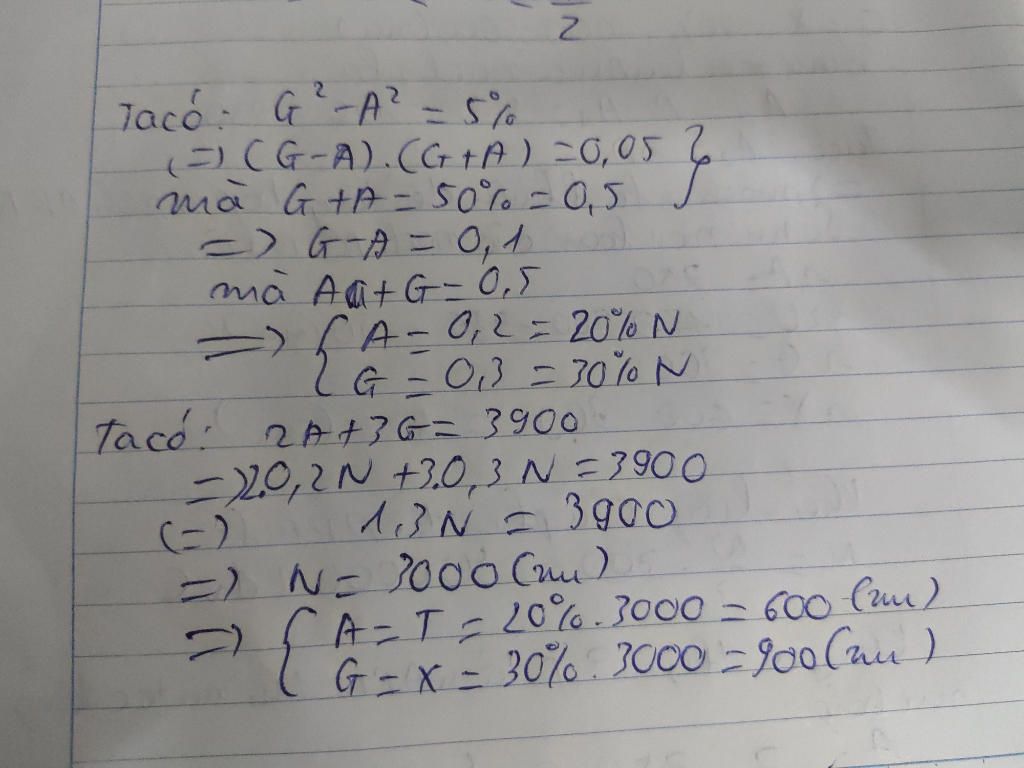 2
Ta có: G² - A² = 5%
(=) (G - A).(G + A) = 0,05 }
mà G + A = 50% = 0,5
=> G - A = 0,1
mà A + G = 0,5
=> { A = 0,2 = 20% N
G = 0,3 = 30% N
Ta có: 2A + 3G = 3900
=) 2.0,2N + 3.0,3N = 3900
(=) 1,3N = 3900
=) N = 3000 (nu)
=) { A = T = 20%.3000 = 600 (nu)
G = X = 30%.3000 = 900 (nu)